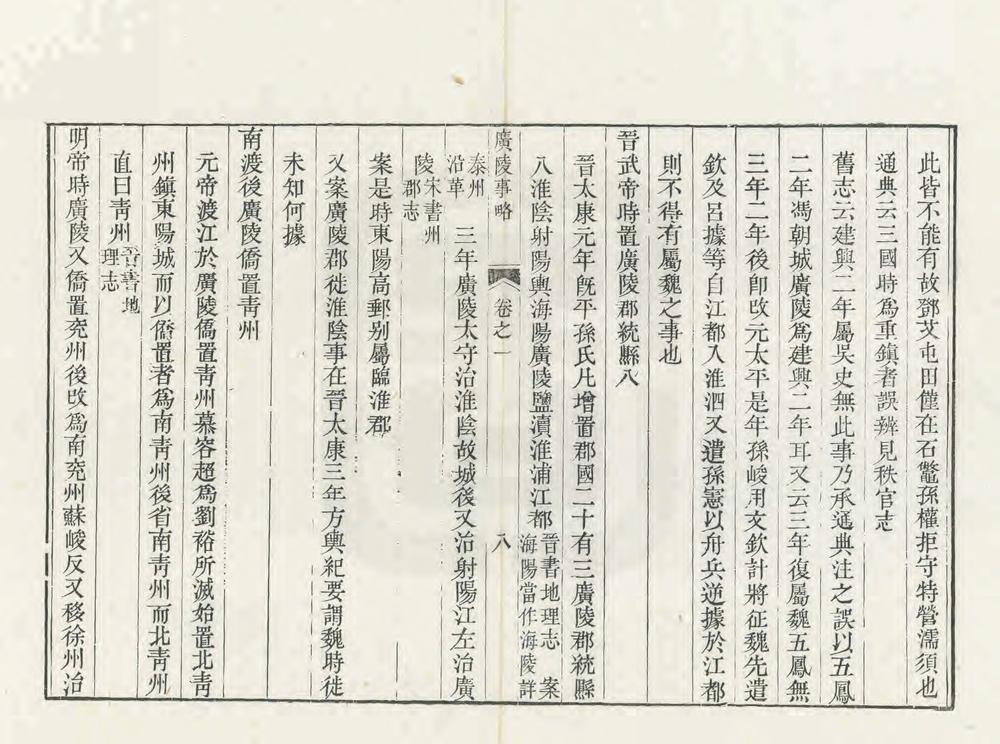 此皆不能有故鄧艾屯田僅在石鼈孫權拒守特營濡須也
通典云三國時爲重鎭者誤辨見秩官志
舊志云建興二年屬吳史無此事乃承通典注之誤以五鳳
二年馮朝城廣陵爲建興二年耳又云三年復屬魏五鳳無
三年二年後卽改元太平是年孫峻用文欽計將征魏先遣
欽及呂據等自江都入淮泗又遣孫憲以舟兵逆據於江都
則不得有屬魏之事也
晉武帝時置廣陵郡統縣八
晉太康元年旣平孫氏凡增置郡國二十有三廣陵郡統縣
八淮陰射陽輿海陽廣陵鹽瀆淮浦江都晉書地理志 案
海陽當作海陵詳
廣陵事略 卷之一 八
泰州
沿革 三年廣陵太守治淮陰故城後又治射陽江左治廣
陵宋書州
郡志
案是時東陽高郵别屬臨淮郡
又案廣陵郡徙淮陰事在晉太康三年方輿紀要謂魏時徙
未知何據
南渡後廣陵僑置靑州
元帝渡江於廣陵僑置靑州慕容超爲劉裕所滅始置北靑
州鎭東陽城而以僑置者爲南靑州後省南靑州而北靑州
直曰靑州晉書地
理志
明帝時廣陵又僑置兖州後改爲南兖州蘇峻反又移徐州治